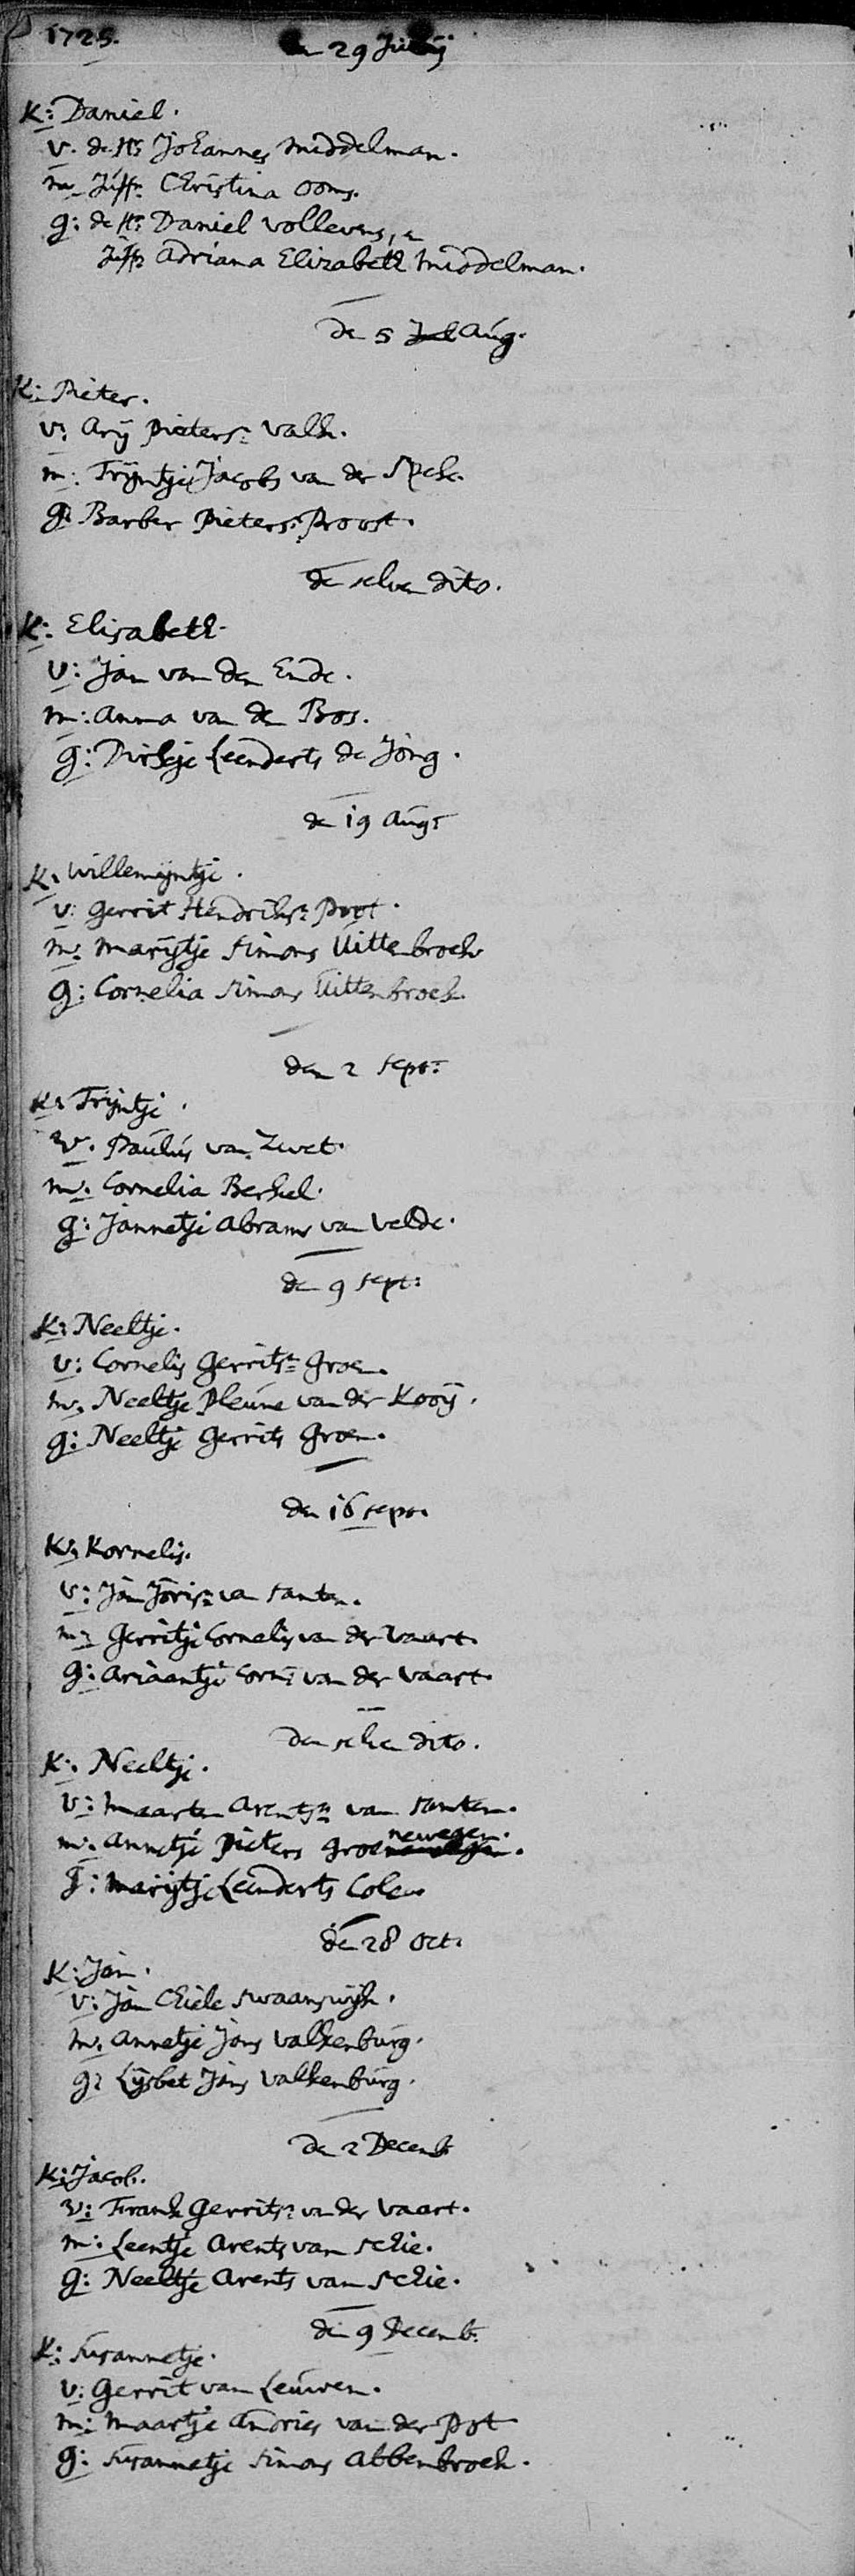 1725.
den 29 Julij
K: Daniel.
v. de Hr Johannes Middelman.
m. Juffr. Christina Ooms.
g: de Hr. Daniel Vollevens, en
Juffr. Adriana Elizabeth Middelman.
de 5 Aug.
K: Pieter.
v: Arij Pieters: Valk.
m: Trijntje Jacobs van der Spek.
g: Barber Pieters: Proost.
de selven dito.
K: Elisabeth.
v: Jan van den Ende.
m: Anna van den Bos.
g: Dirkje Leenderts de Jong.
den 19 Aug:
K: Willemijntje.
v: Gerrit Hendriksz: Poot.
m: Marijtje Simons Uittenbroek
g: Cornelia Simons Uittenbroek.
den 2 Sept:
K: Trijntje.
v. Paulus van Zwet.
m. Cornelia Berkel.
g: Jannetje Abrams van Velde.
den 9 Sept:
K: Neeltje.
v: Cornelis Gerritsz: Groen.
m. Neeltje Pleune van der Kooij.
g: Neeltje Gerrits Groen.
den 16 Sept.
K: Kornelis.
v: Jan Jorisz: van Santen.
m: Gerritje Cornelis van der Vaart.
g: Ariaantje Corn: van der Vaart.
den selven dito.
K: Neeltje.
v: Maarten Arentsz: van Santen.
m: Annetje Pieters Groenewegen.
g: Marijtje Leenderts Cole
den 28 Oct.
K: Jan.
v: Jan Chiele Swaanswijk.
m. Annetje Jans Valkenburg.
g: Lijsbet Jans Valkenburg.
den 2 Decemb
K: Jacob.
v: Frank Gerritsz: van der Vaart.
m: Leentje Arents van Schie.
g: Neeltje Arents van Schie.
den 9 Decemb:
K: Susannetje.
v: Gerrit van Leuwen.
m: Maartje Andries van der Pot
g: Susannetje Simons Abbenbroek.